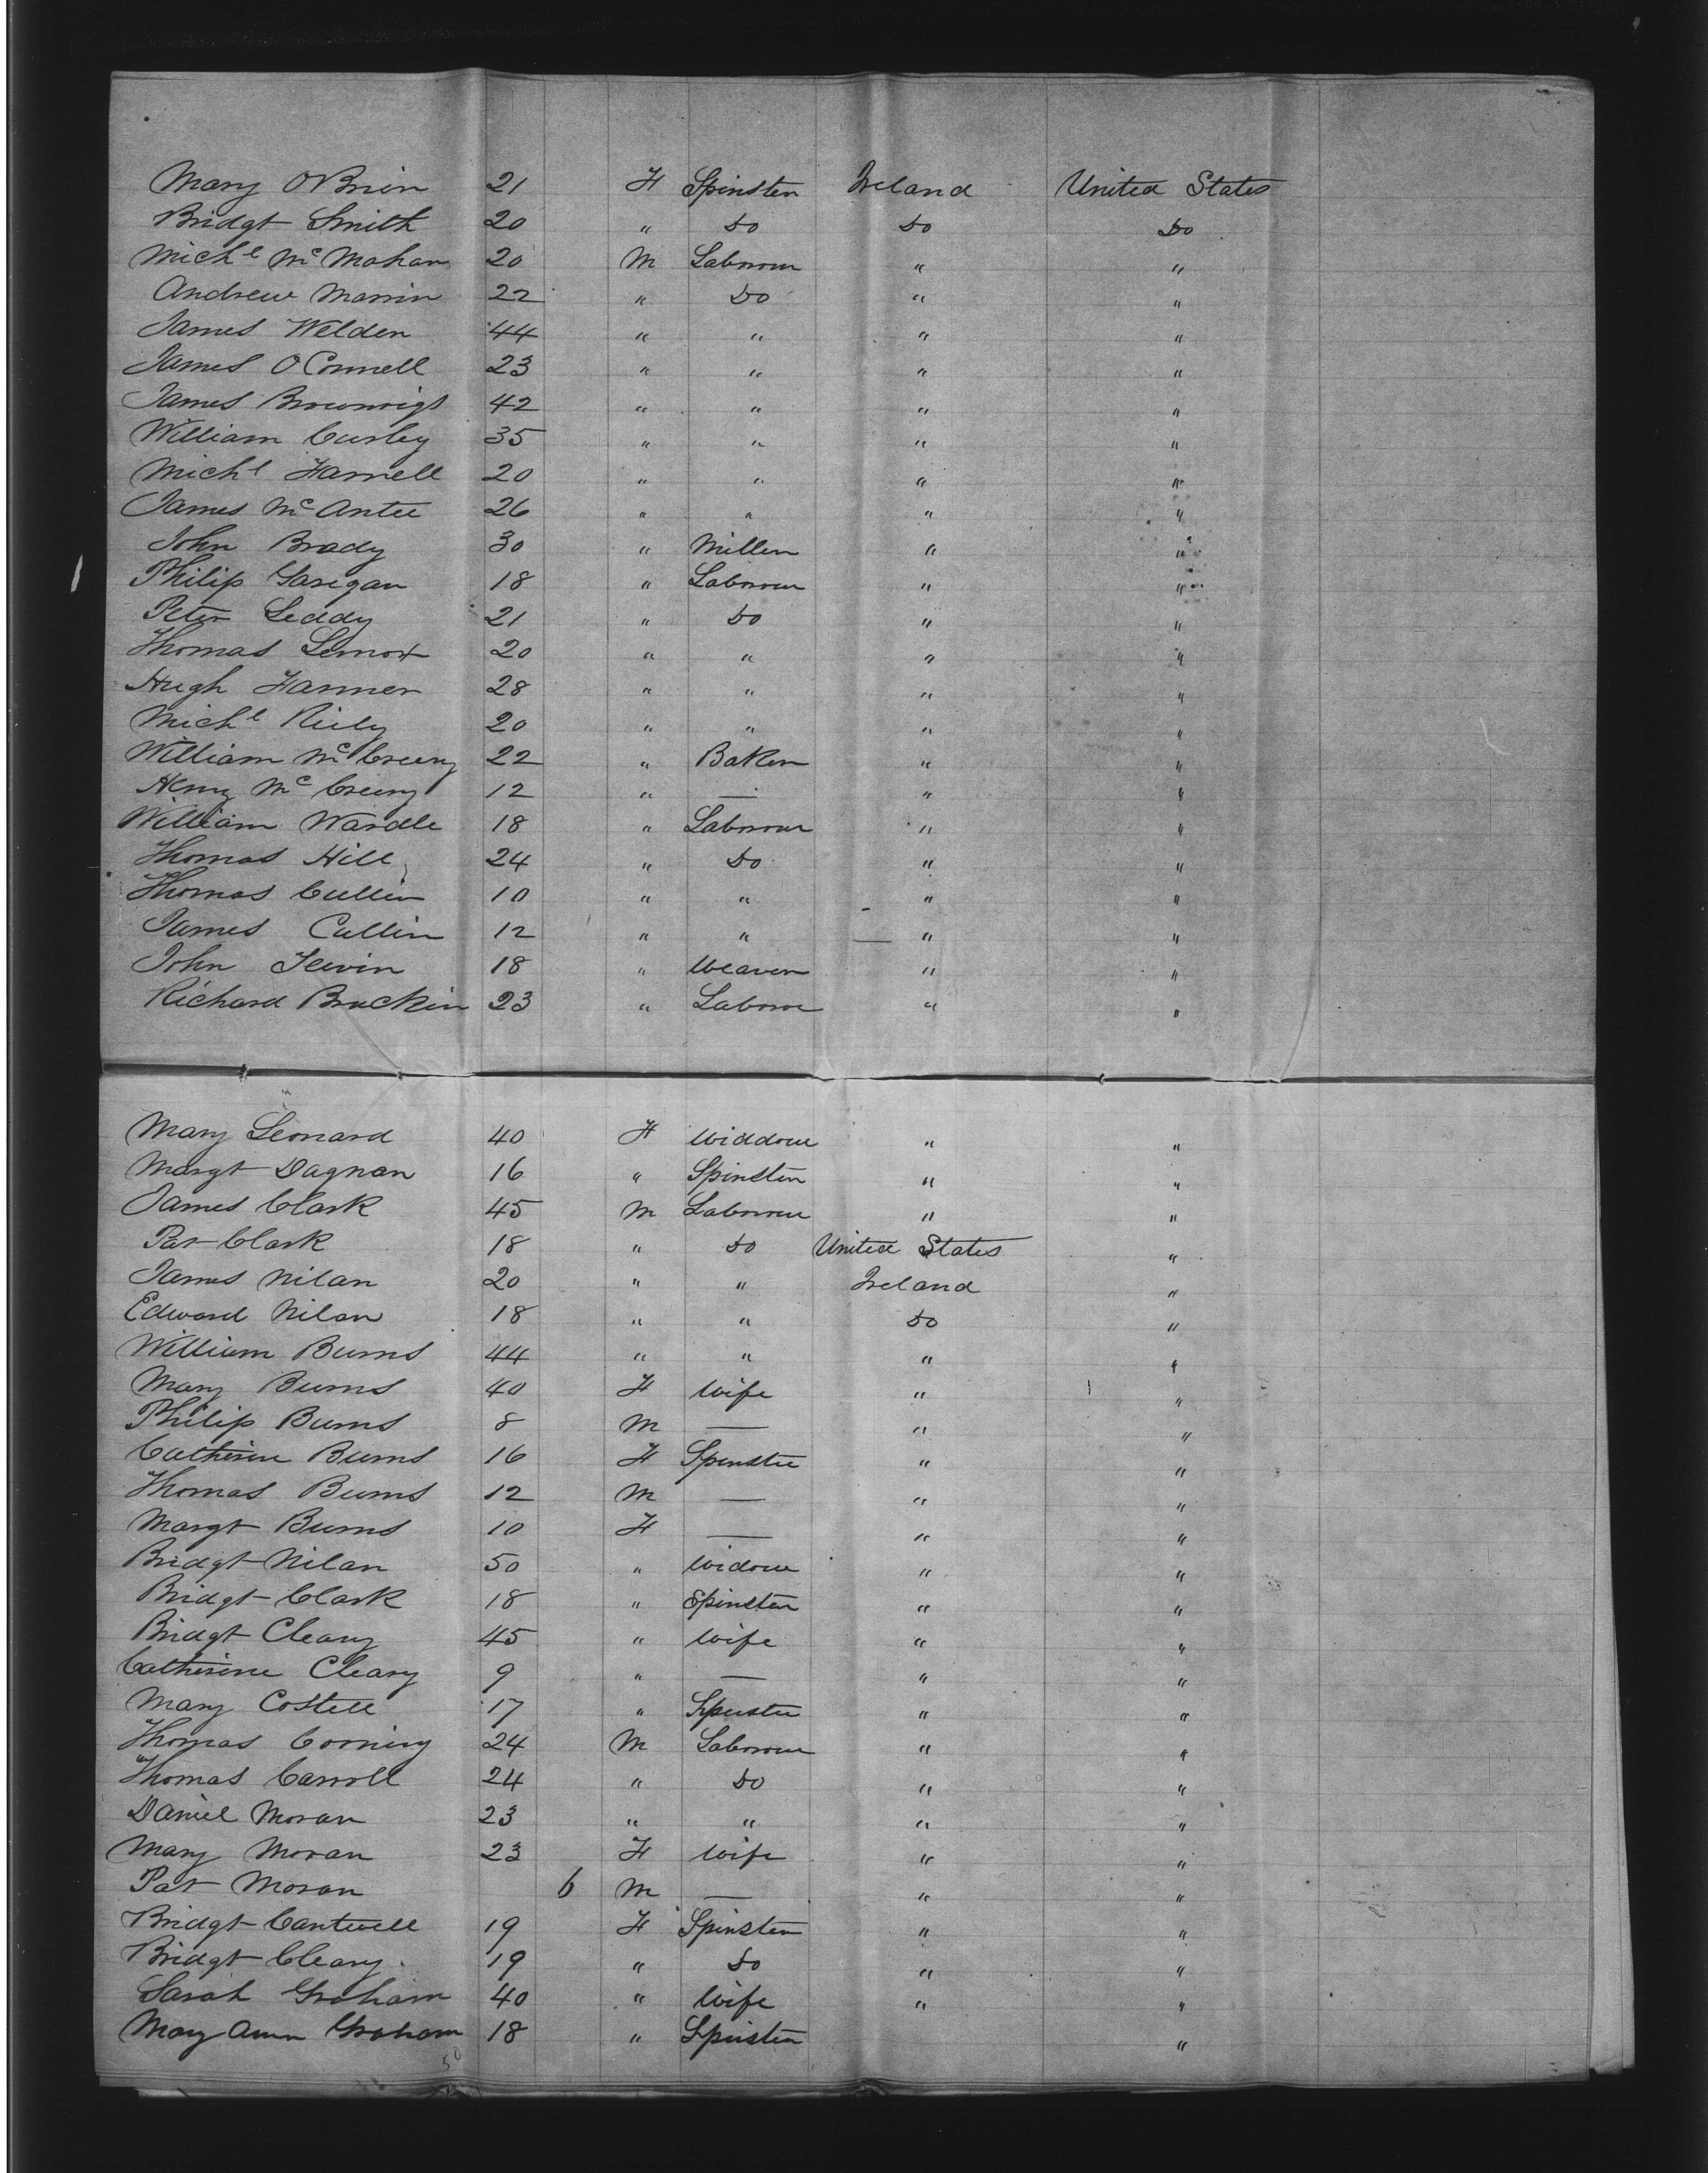 Mary O'Brien 21 F Spinster Ireland United States
Bridgt Smith 20 " Do Do Do
Michl McMahan 20 M Labourer " "
Andrew Marrin 22 " Do " "
James Welden 44 " " " "
James O'Connell 23 " " " "
James 42 " " " "
William Curley 35 " " " "
Michl Farrell 20 " " " "
James McAntee 26 " " " "
John Brady 30 " Miller " "
Philip Garigan 18 " Labourer " "
Peter Leddy 21 " Do " "
Thomas 20 " " " "
Hugh Farmer 28 " " " "
Michl Riely 20 " " " "
William McCreery 22 " Baker " "
Henry McCreery 12 " — " "
William Wardle 18 " Labourer " "
Thomas Hill 24 " Do " "
Thomas Cullin 10 " " " "
James Cullin 12 " " " "
John 18 " Weaver " "
Richard Brackin 23 " Labourer " "
Mary Leonard 40 F Widdow " "
Margt Dagnan 16 " Spinster " "
James Clark 45 M Labourer " "
Pat Clark 18 " Do United States "
James Nilan 20 " " Ireland "
Edward Nilan 18 " " Do "
William Burns 44 " " " "
Mary Burns 40 F Wife " "
Philip Burns 8 M — " "
Catherine Burns 16 F Spinster " "
Thomas Burns 12 M — " "
Margt Burns 10 F — " "
Bridgt Nilan 50 " Widow " "
Bridgt Clark 18 " Spinster " "
Bridgt Cleary 45 " Wife " "
Catherine Cleary 9 " — " "
Mary Costell 17 " Spinster " "
Thomas Corning 24 M Labourer " "
Thomas Carroll 24 " Do " "
Daniel Moran 23 " " " "
Mary Moran 23 F Wife " "
Pat Moran 6 M — " "
Bridgt Cantwell 19 F Spinster " "
Bridgt Cleary 19 " Do " "
Sarah Graham 40 " Wife " "
Mary Ann Graham 18 " Spinster "
50